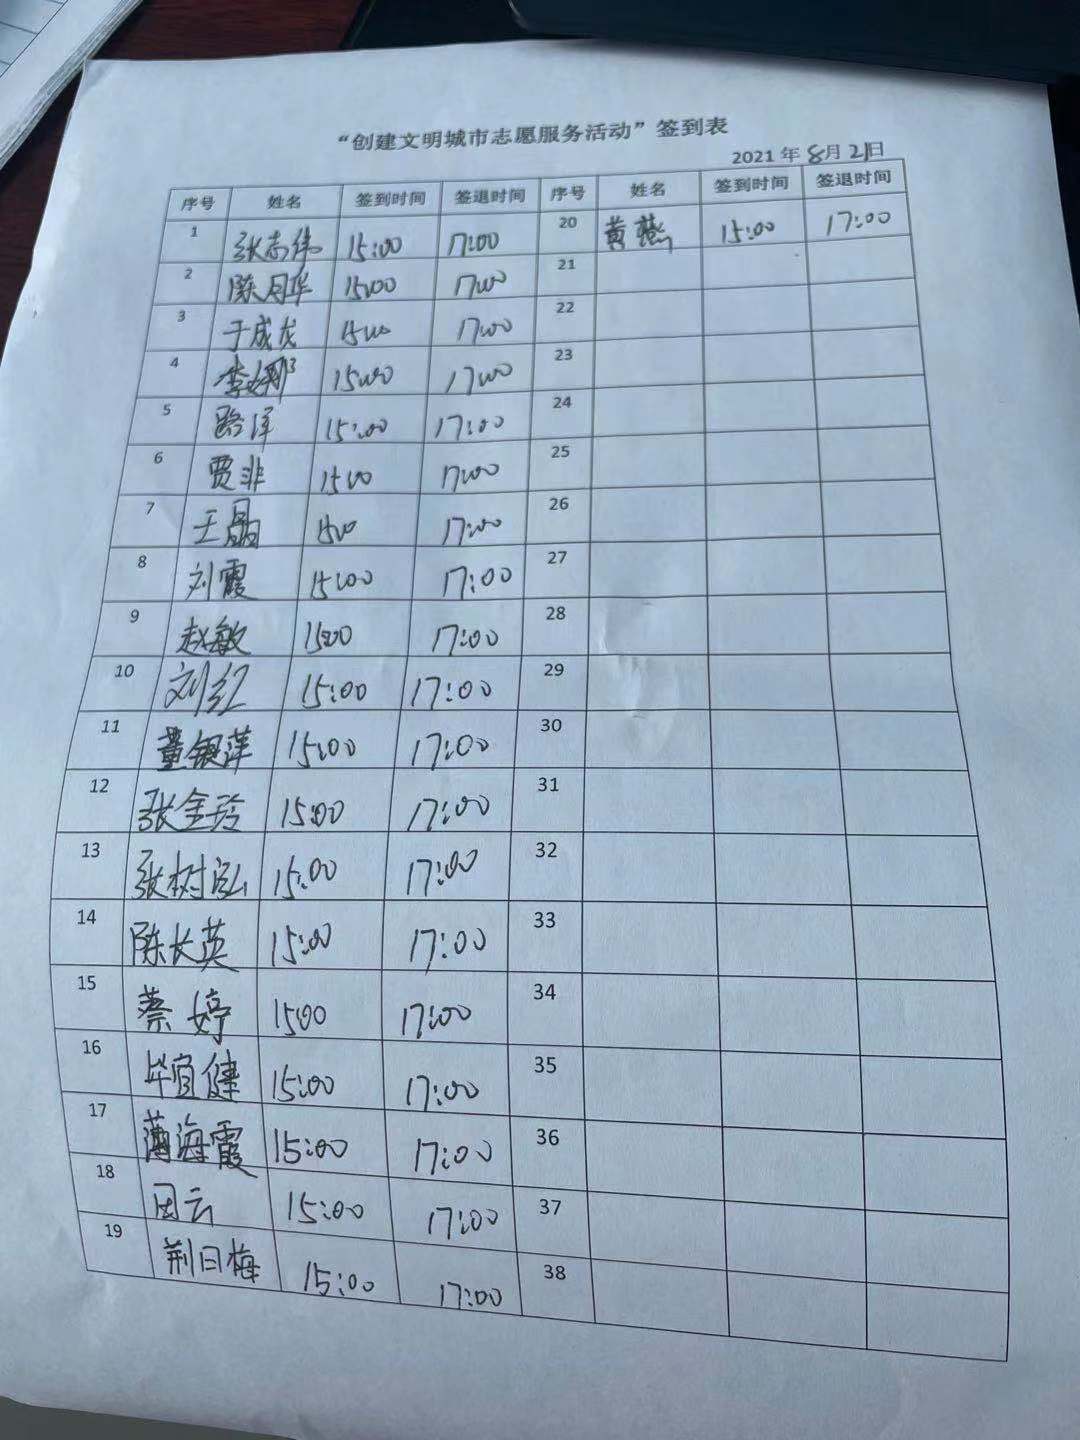 “创建文明城市志愿服务活动”签到表
2021年8月21日
序号 姓名 签到时间 签退时间 序号 姓名 签到时间 签退时间
1 张志伟 15:00 17:00 20 黄燕 15:00 17:00
2 陈月华 15:00 17:00 21
3 于成龙 15:00 17:00 22
4 李娜 15:00 17:00 23
5 路洋 15:00 17:00 24
6 贾非 15:00 17:00 25
7 王晶 15:00 17:00 26
8 刘霞 15:00 17:00 27
9 赵敏 15:00 17:00 28
10 刘红 15:00 17:00 29
11 董银萍 15:00 17:00 30
12 张金玲 15:00 17:00 31
13 张树泓 15:00 17:00 32
14 陈长英 15:00 17:00 33
15 蔡婷 15:00 17:00 34
16 毕宜健 15:00 17:00 35
17 蒲海霞 15:00 17:00 36
18 田云 15:00 17:00 37
19 荆日梅 15:00 17:00 38